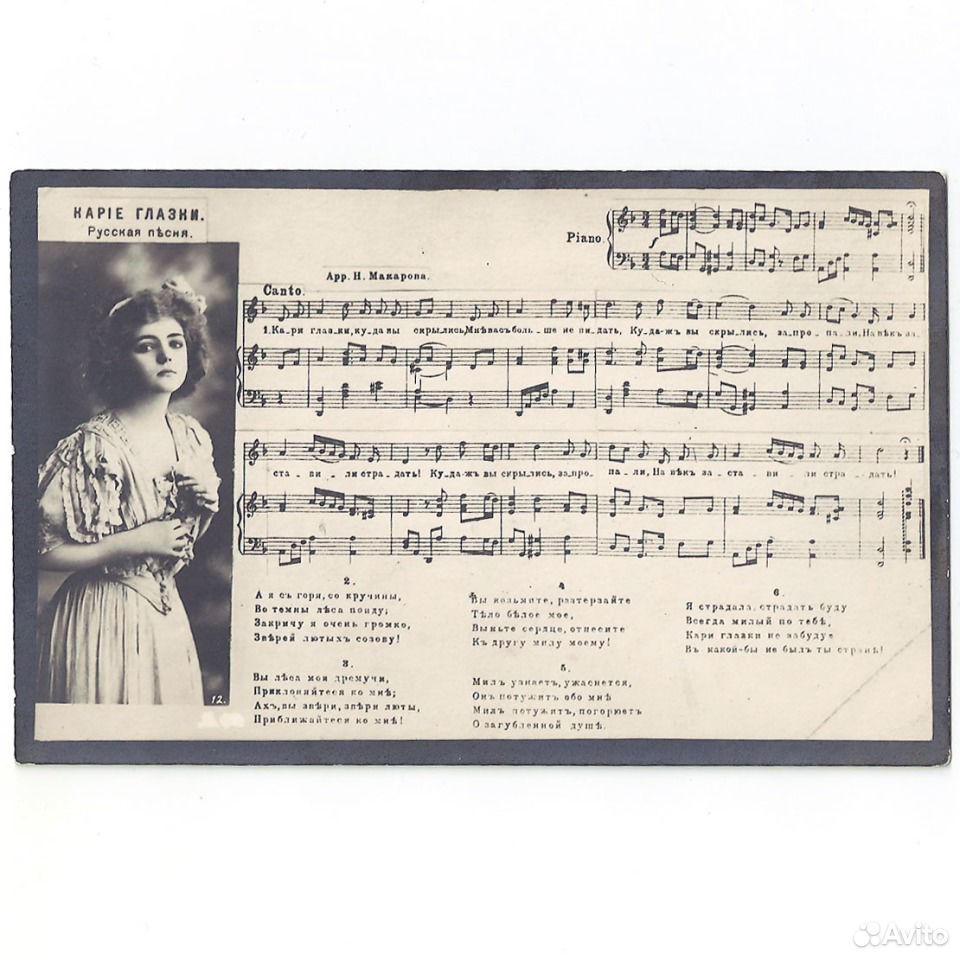 КАРІЕ ГЛАЗКИ.
Русская пѣсня.
Piano.
Арр. Н. Макарова.
Canto.
1. Ка_ри глаз_ки, ку_да вы скры_лись, Мнѣ васъ боль_ше не ви_дать, Ку_да-жъ вы скры_лись, за_про_па_ли, На вѣкъ за_
ста_ви_ли стра_дать! Ку_да-жъ вы скры_лись, за_про_па_ли, На вѣкъ за_ста_ви_ли стра_дать!
2.
А я съ горя, со кручины,
Во темны лѣса пойду;
Закричу я очень громко,
Звѣрей лютыхъ созову!
3.
Вы лѣса мои дремучи,
Приклоняйтеся ко мнѣ;
Ахъ, вы звѣри, звѣри люты,
Приближайтеся ко мнѣ!
4
Вы возьмите, разтерзайте
Тѣло бѣлое мое,
Выньте сердце, отнесите
Къ другу милу моему!
5.
Милъ узнаетъ, ужаснется,
Онъ потужитъ обо мнѣ
Милъ потужитъ, погорюетъ
О загубленной душѣ.
6.
Я страдала, страдать буду
Всегда милый по тебѣ,
Кари глазки не забуду
Въ какой-бы не былъ ты странѣ!
12.
Avito